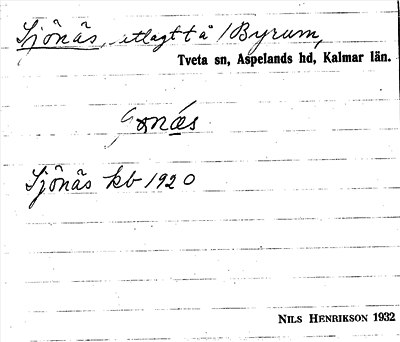 Sjönäs, utlagt t å 1 Byrum,
Tveta sn, Aspelands hd, Kalmar län.
Sjönäs kb 1920
NILS HENRIKSON 1932